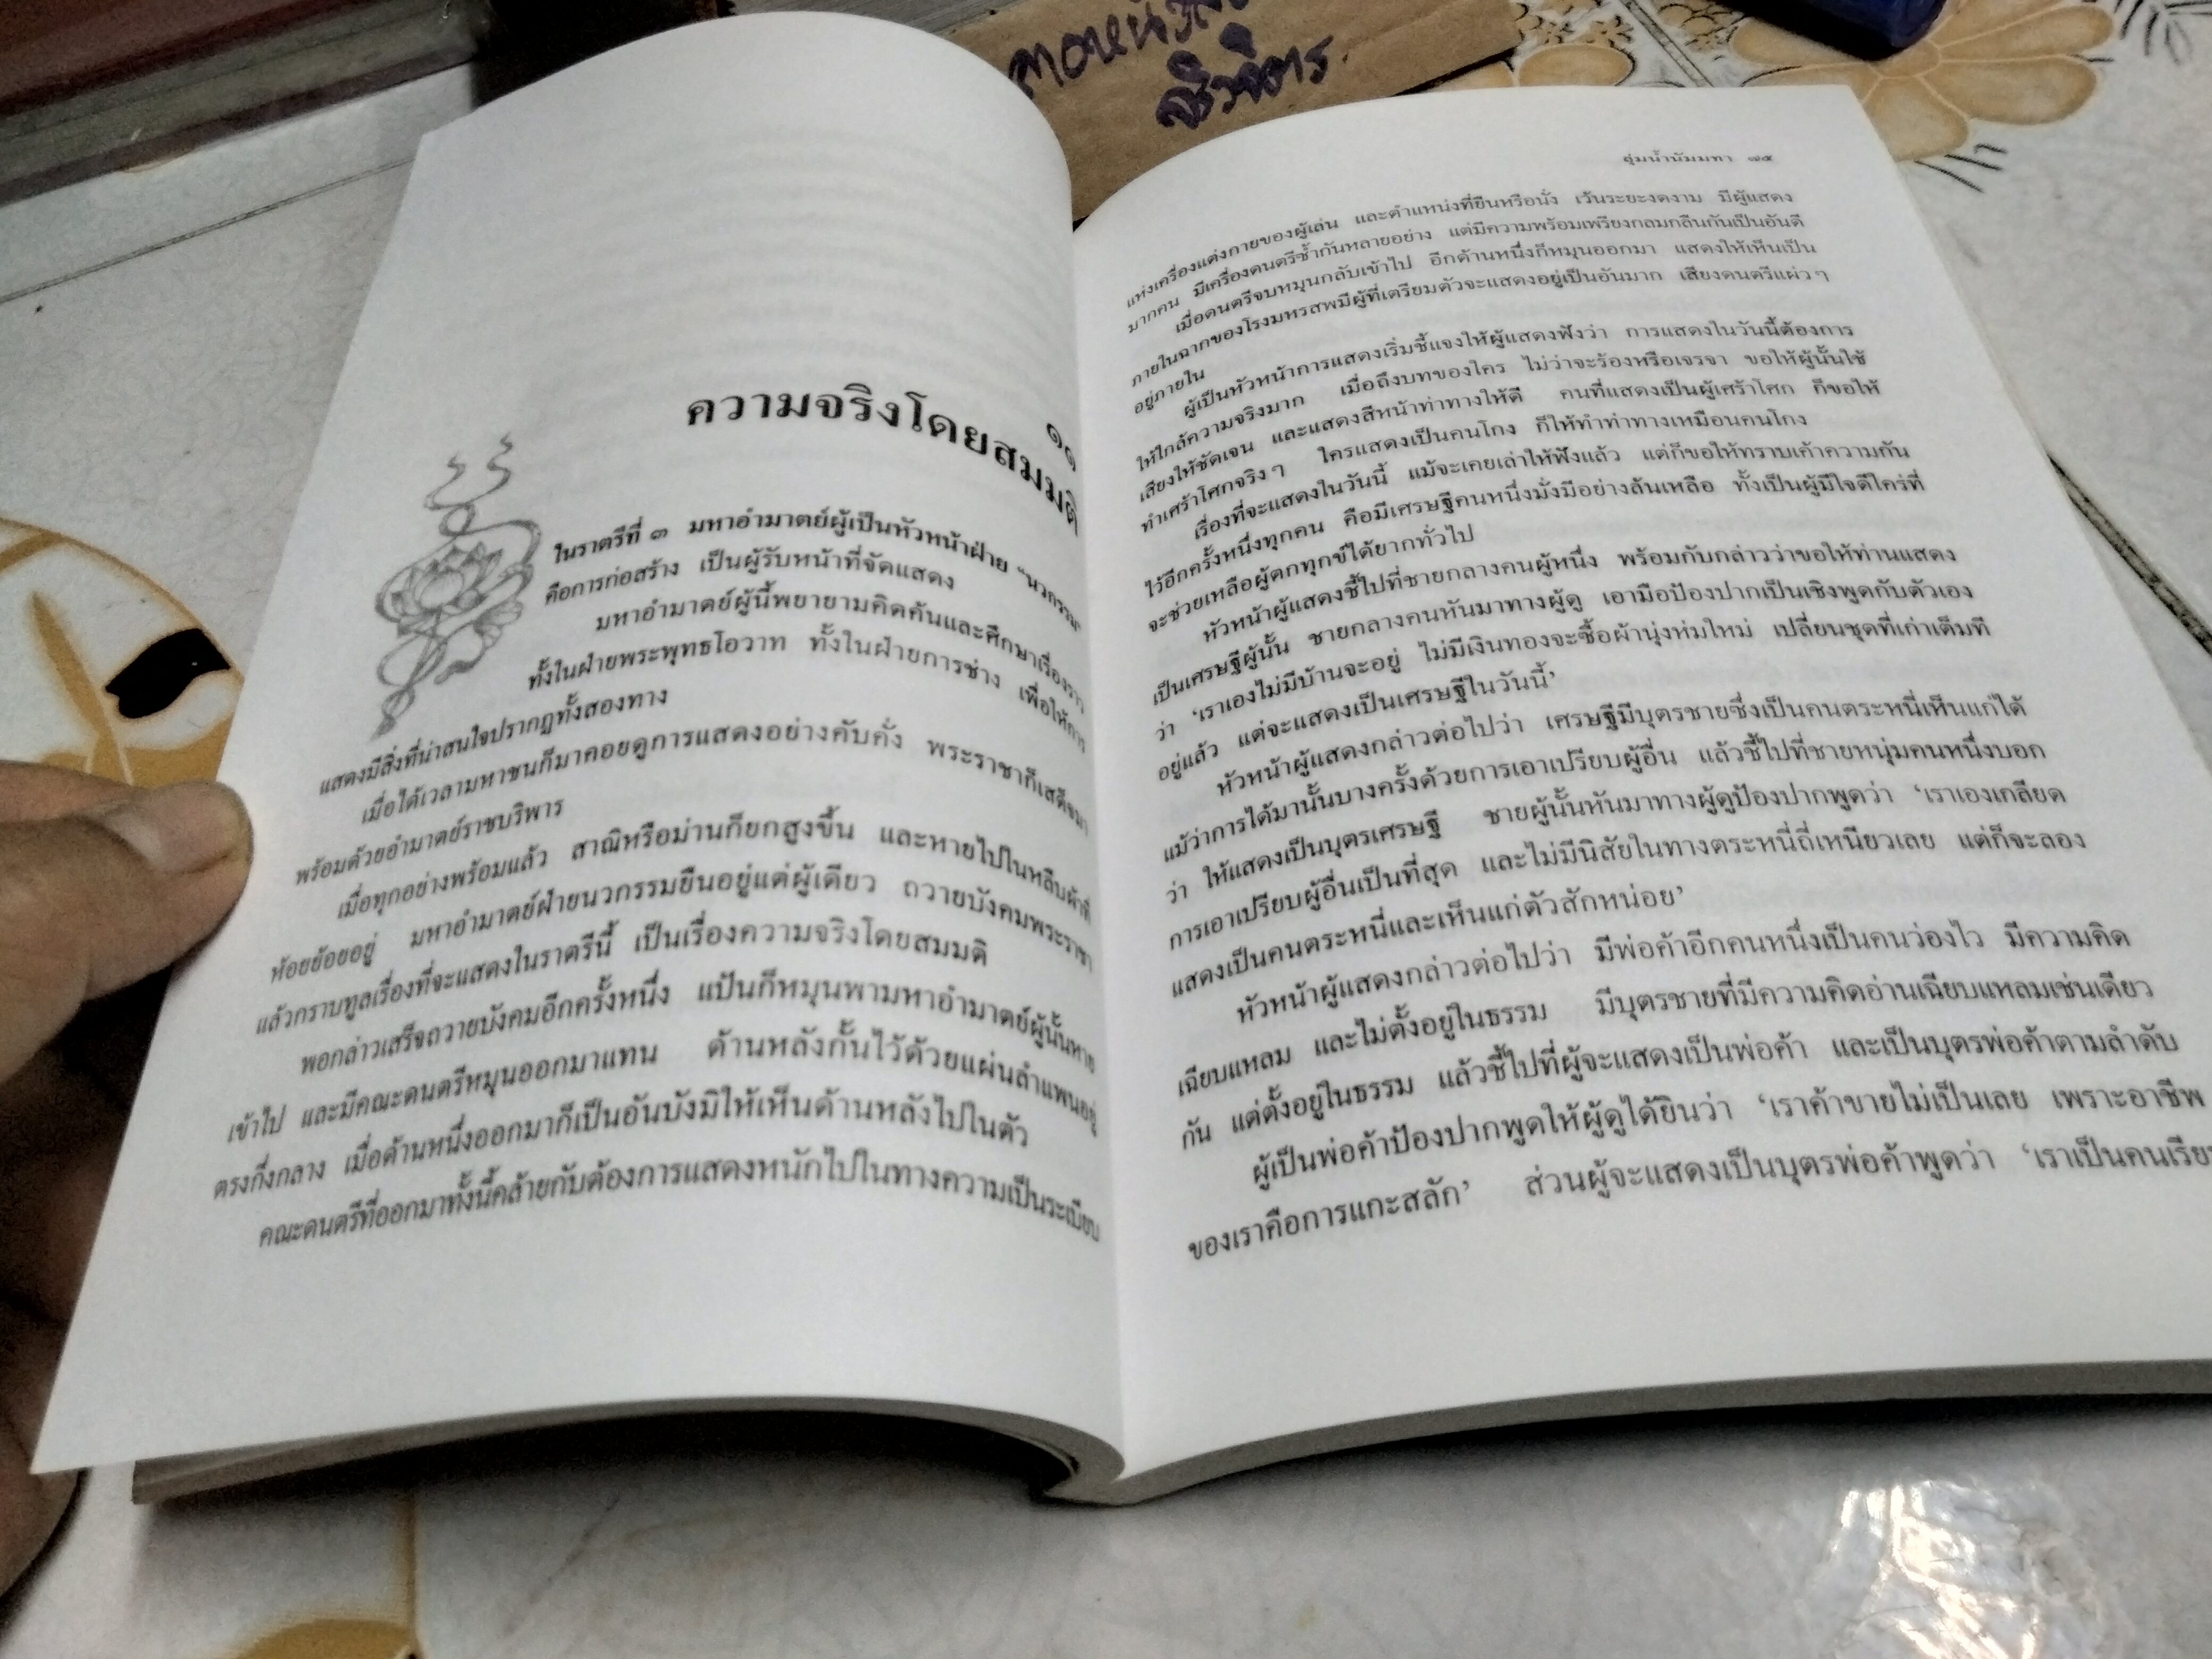 ๑๑
ความจริงโดยสมมติ
ในราตรีที่ ๓ มหาอำมาตย์ผู้เป็นหัวหน้าฝ่าย “นวกรรม”
คือการก่อสร้าง เป็นผู้รับหน้าที่จัดแสดง
มหาอำมาตย์ผู้นี้พยายามคิดค้นและศึกษาเรื่องราว
ทั้งในฝ่ายพระพุทธโอวาท ทั้งในฝ่ายการช่าง เพื่อให้การ
แสดงมีสิ่งที่น่าสนใจปรากฏทั้งสองทาง
เมื่อได้เวลามหาชนก็มาคอยดูการแสดงอย่างคับคั่ง พระราชาก็เสด็จมา
พร้อมด้วยอำมาตย์ราชบริพาร
เมื่อทุกอย่างพร้อมแล้ว สาณิหรือม่านก็ยกสูงขึ้น และหายไปในหลืบผ้าที่
ห้อยย้อยอยู่ มหาอำมาตย์ฝ่ายนวกรรมยืนอยู่แต่ผู้เดียว ถวายบังคมพระราชา
แล้วกราบทูลเรื่องที่จะแสดงในราตรีนี้ เป็นเรื่องความจริงโดยสมมติ
พอกล่าวเสร็จถวายบังคมอีกครั้งหนึ่ง แป้นก็หมุนพามหาอำมาตย์ผู้นั้นหาย
เข้าไป และมีคณะดนตรีหมุนออกมาแทน ด้านหลังกั้นไว้ด้วยแผ่นลำแพนอยู่
ตรงกึ่งกลาง เมื่อด้านหนึ่งออกมาก็เป็นอันบังมิให้เห็นด้านหลังไปในตัว
คณะดนตรีที่ออกมาทั้งนี้คล้ายกับต้องการแสดงหนักไปในทางความเป็นระเบียบ
ลุ่มน้ำนัมมทา ๗๕
แห่งเครื่องแต่งกายของผู้เล่น และตำแหน่งที่ยืนหรือนั่ง เว้นระยะงดงาม มีผู้แสดง
มากคน มีเครื่องดนตรีซ้ำกันหลายอย่าง แต่มีความพร้อมเพรียงกลมกลืนกันเป็นอันดี
เมื่อดนตรีจบหมุนกลับเข้าไป อีกด้านหนึ่งก็หมุนออกมา แสดงให้เห็นเป็น
ภายในฉากของโรงมหรสพมีผู้ที่เตรียมตัวจะแสดงอยู่เป็นอันมาก เสียงดนตรีแผ่วๆ
อยู่ภายใน
ผู้เป็นหัวหน้าการแสดงเริ่มชี้แจงให้ผู้แสดงฟังว่า การแสดงในวันนี้ต้องการ
ให้ใกล้ความจริงมาก เมื่อถึงบทของใคร ไม่ว่าจะร้องหรือเจรจา ขอให้ผู้นั้นใช้
เสียงให้ชัดเจน และแสดงสีหน้าท่าทางให้ดี คนที่แสดงเป็นผู้เศร้าโศก ก็ขอให้
ทำเศร้าโศกจริงๆ ใครแสดงเป็นคนโกง ก็ให้ทำท่าทางเหมือนคนโกง
เรื่องที่จะแสดงในวันนี้ แม้จะเคยเล่าให้ฟังแล้ว แต่ก็ขอให้ทราบเค้าความกัน
ไว้อีกครั้งหนึ่งทุกคน คือมีเศรษฐีคนหนึ่งมั่งมีอย่างล้นเหลือ ทั้งเป็นผู้มีใจดีใคร่ที่
จะช่วยเหลือผู้ตกทุกข์ได้ยากทั่วไป
หัวหน้าผู้แสดงชี้ไปที่ชายกลางคนผู้หนึ่ง พร้อมกับกล่าวว่าขอให้ท่านแสดง
เป็นเศรษฐีผู้นั้น ชายกลางคนหันมาทางผู้ดู เอามือป้องปากเป็นเชิงพูดกับตัวเอง
ว่า ‘เราเองไม่มีบ้านจะอยู่ ไม่มีเงินทองจะซื้อผ้านุ่งห่มใหม่ เปลี่ยนชุดที่เก่าเต็มที
อยู่แล้ว แต่จะแสดงเป็นเศรษฐีในวันนี้’
หัวหน้าผู้แสดงกล่าวต่อไปว่า เศรษฐีมีบุตรชายซึ่งเป็นคนตระหนี่เห็นแก่ได้
แม้ว่าการได้มานั้นบางครั้งด้วยการเอาเปรียบผู้อื่น แล้วชี้ไปที่ชายหนุ่มคนหนึ่งบอก
ว่า ให้แสดงเป็นบุตรเศรษฐี ชายผู้นั้นหันมาทางผู้ดูป้องปากพูดว่า ‘เราเองเกลียด
การเอาเปรียบผู้อื่นเป็นที่สุด และไม่มีนิสัยในทางตระหนี่ถี่เหนียวเลย แต่ก็จะลอง
แสดงเป็นคนตระหนี่และเห็นแก่ตัวสักหน่อย’
หัวหน้าผู้แสดงกล่าวต่อไปว่า มีพ่อค้าอีกคนหนึ่งเป็นคนว่องไว มีความคิด
เฉียบแหลม และไม่ตั้งอยู่ในธรรม มีบุตรชายที่มีความคิดอ่านเฉียบแหลมเช่นเดียว
กัน แต่ตั้งอยู่ในธรรม แล้วชี้ไปที่ผู้จะแสดงเป็นพ่อค้า และเป็นบุตรพ่อค้าตามลำดับ
ผู้เป็นพ่อค้าป้องปากพูดให้ผู้ดูได้ยินว่า ‘เราค้าขายไม่เป็นเลย เพราะอาชีพ
ของเราคือการแกะสลัก’ ส่วนผู้จะแสดงเป็นบุตรพ่อค้าพูดว่า ‘เราเป็นคนเรียน